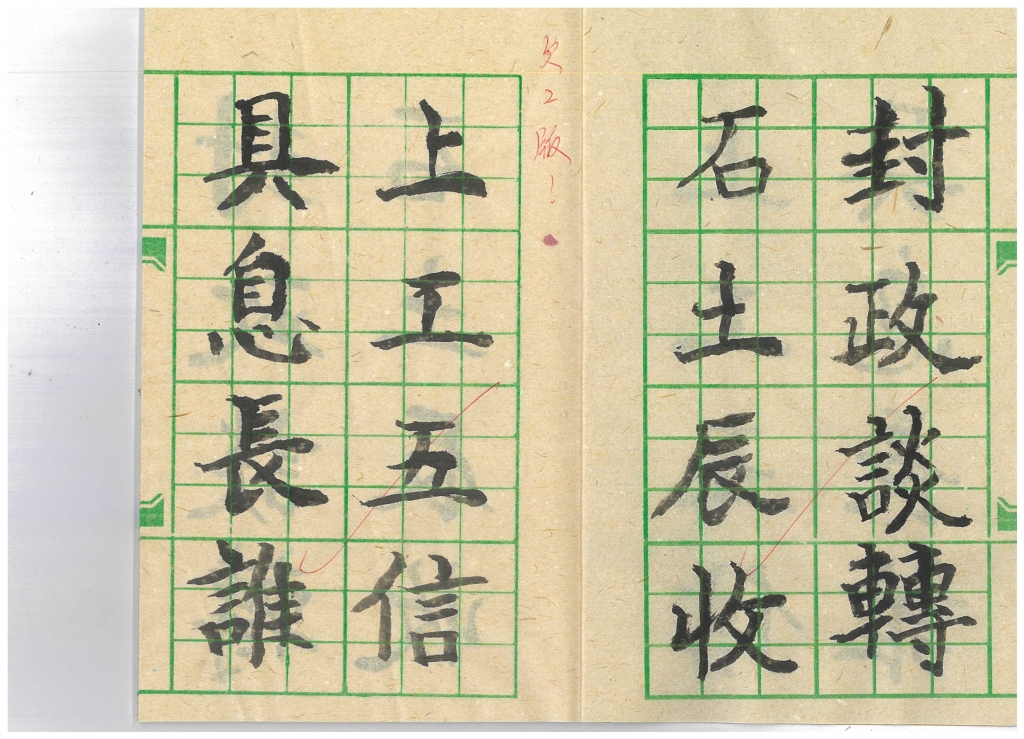 封政談轉
石土辰收
欠2版!
上工五信
具息長誰